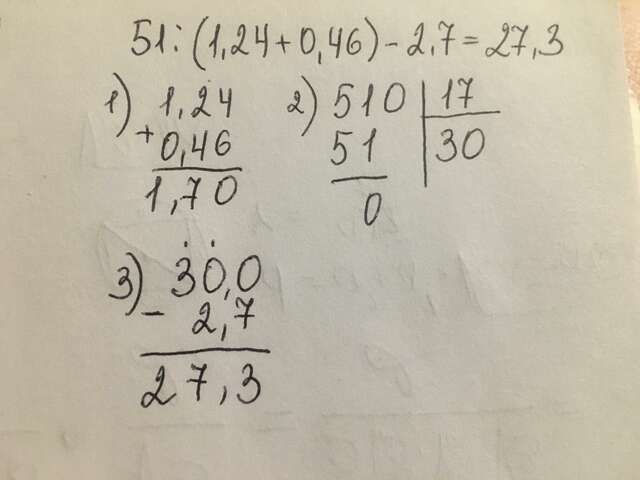 51:(1,24+0,46)-2,7=27,3
1) 1,24
+ 0,46
1,70
2) 510 | 17
51 | 30
0
3) 30,0
- 2,7
27,3